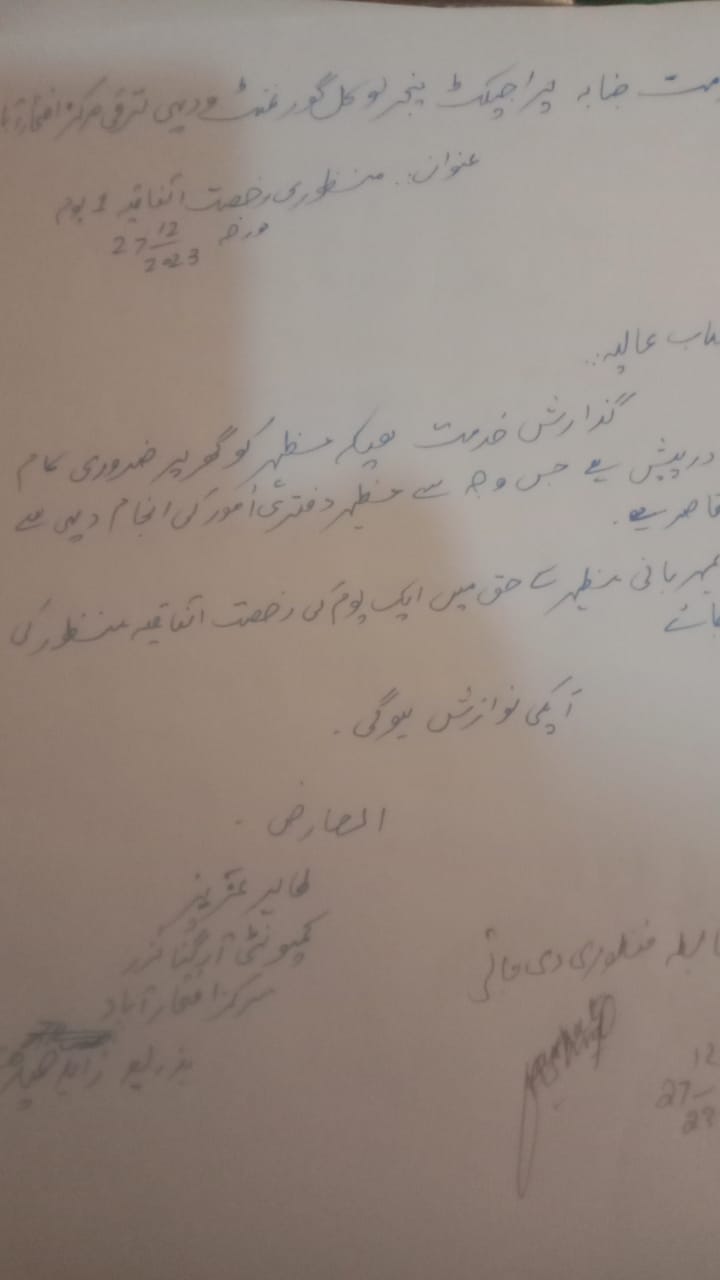 مت جنابہ پراجیکٹ منیجر لوکل گورنمنٹ و دیہی ترقی مرکز افتخار آبا
عنوان:. منظوری رخصت اتفاقیہ 1 یوم
مورخہ 27/12/2023
جناب عالیہ:.
گذارش خدمت ہیکہ مظہر کو گھر پر ضروری کام
درپیش ہے جس وجہ سے مظہر دفتری اُمور کی انجام دہی سے
قاصر ہے.
مہربانی مظہر کے حق میں ایک یوم کی رخصت اتفاقیہ منظور کی
جائے
آپکی نوازش ہوگی.
العارض.
طاہر عزیز
کمیونٹی آرگنائزر
مرکز افتخار آباد
بذریعہ زاہد
ضابطہ منظوری دی جاتی
12
27
23